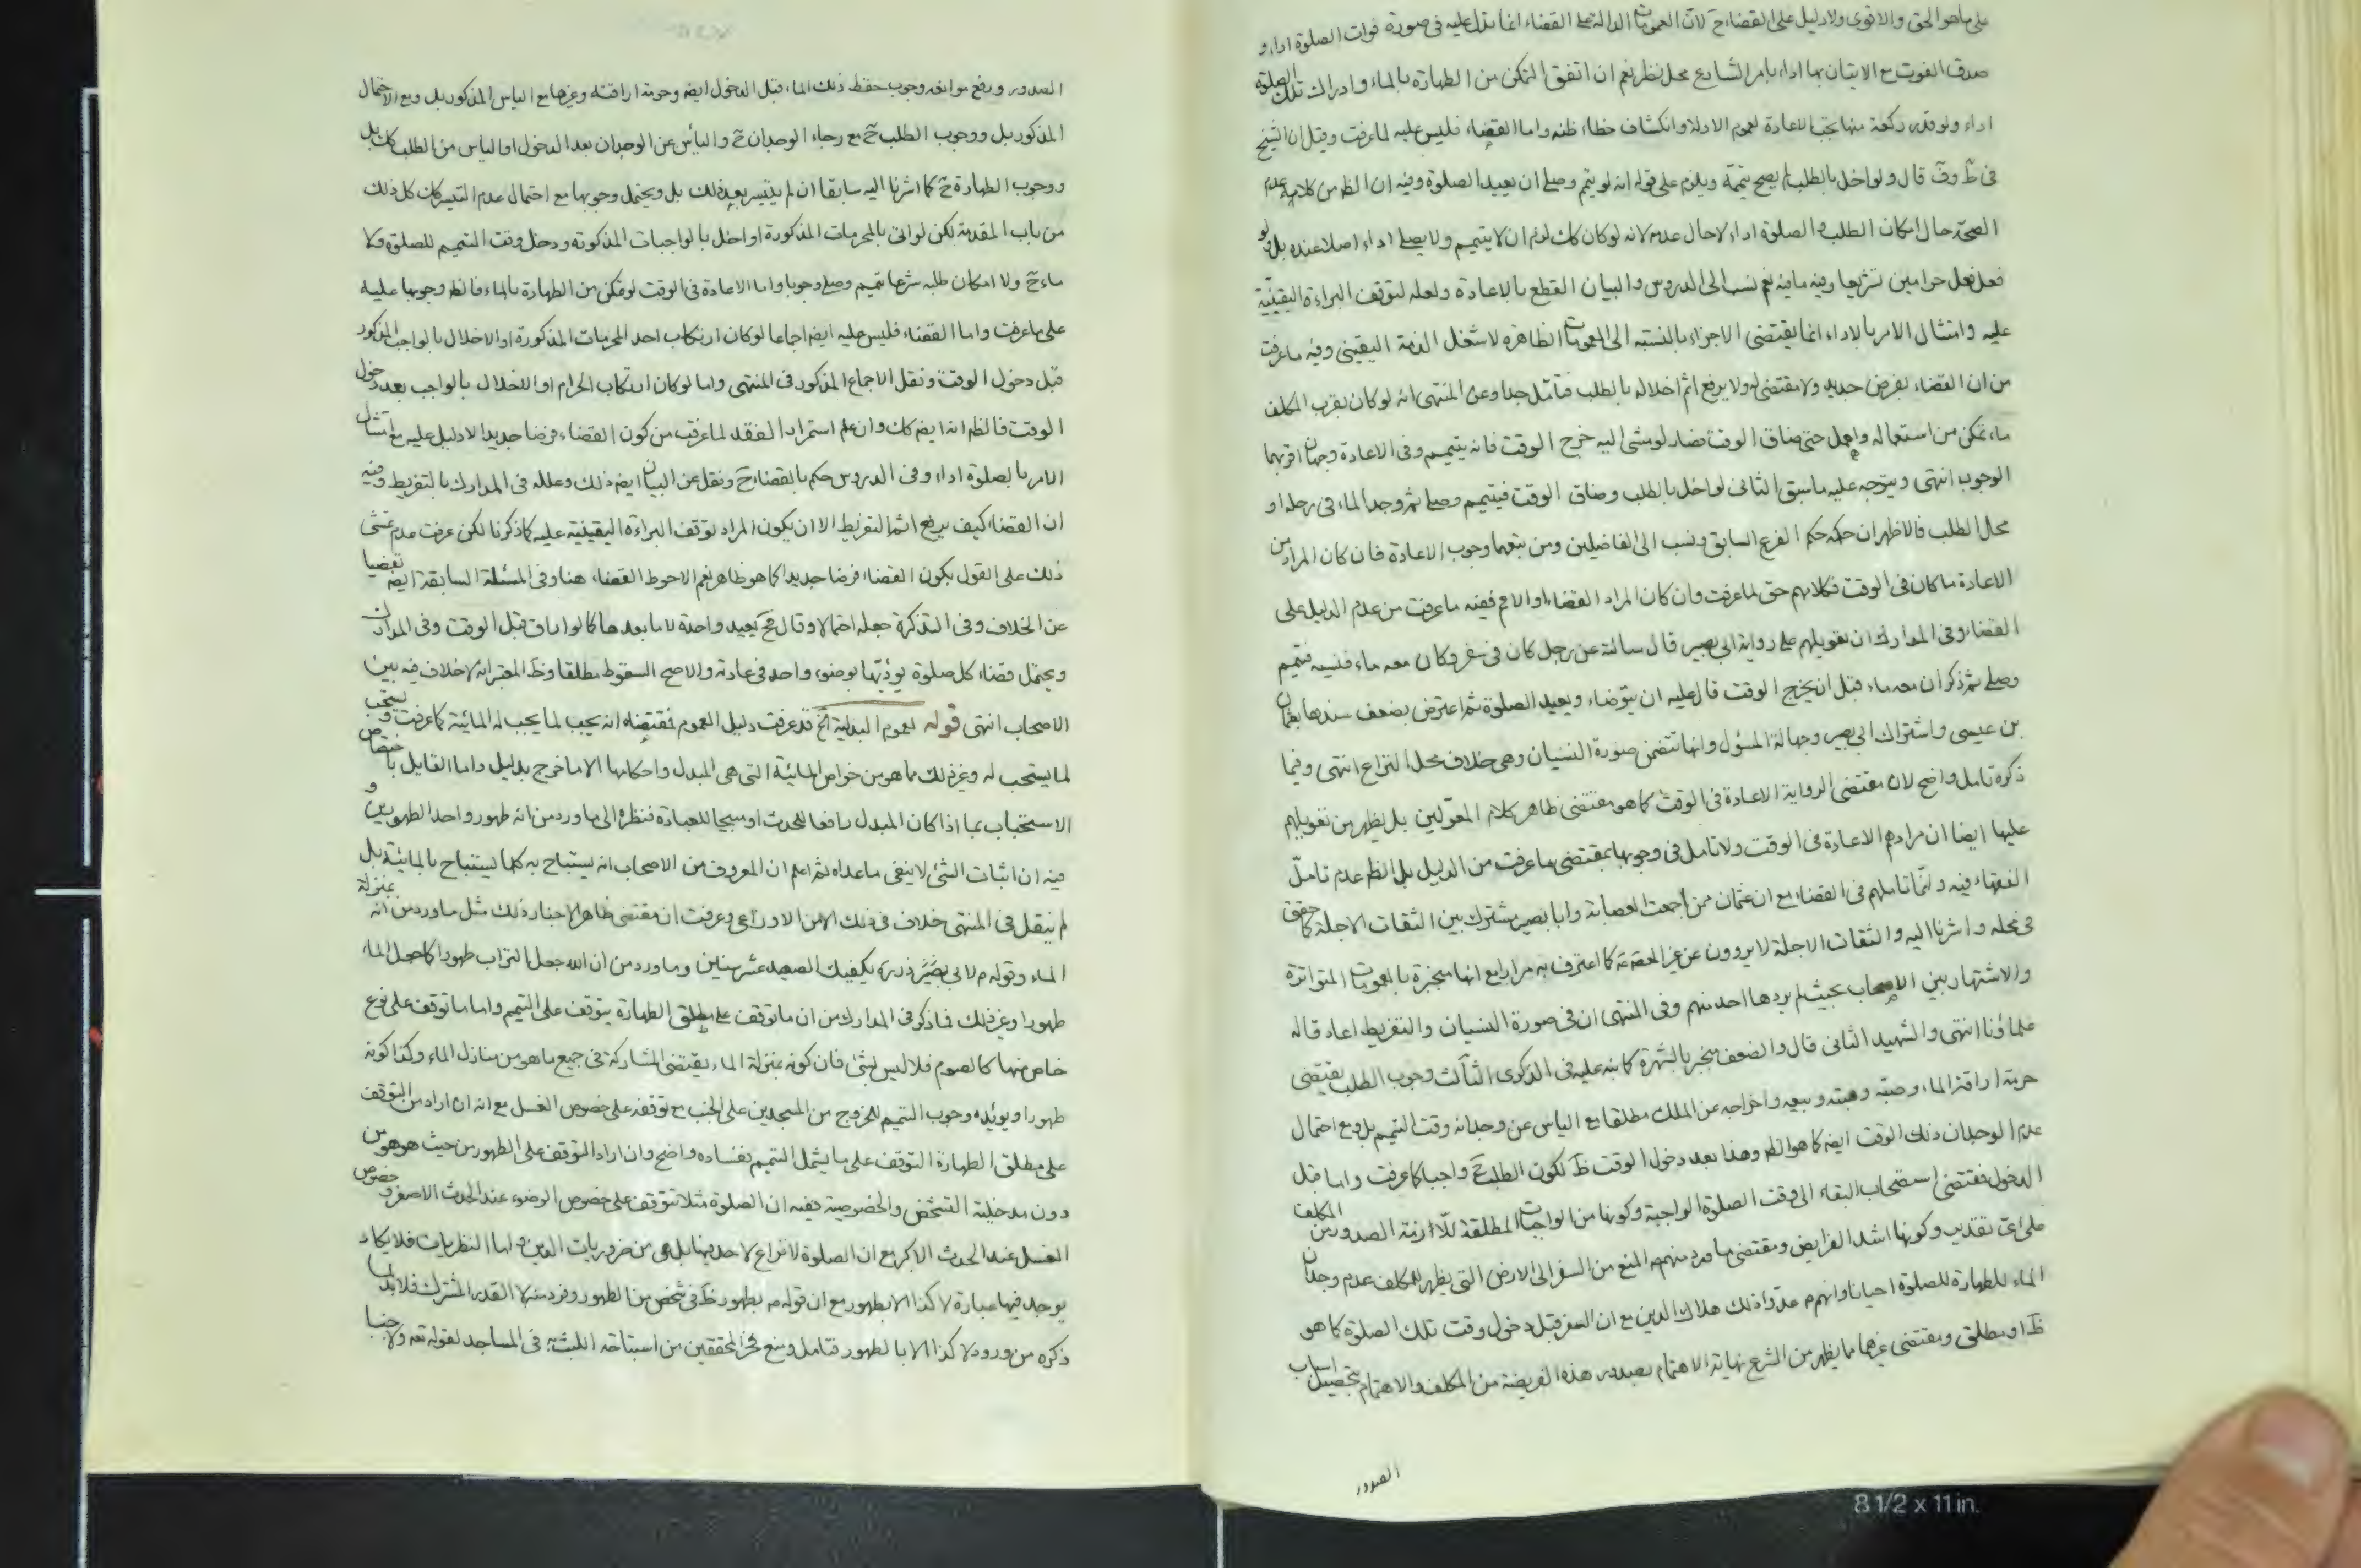 على ماهو الحق والاقوى ولادليل على القضاء ح لان العمومات الدالة على القضاء انما تدل عليه فى صورة فوات الصلوة اداء و
صدق الفوت مع الاتيان بها اداء بامر الشارع محل نظر نعم ان اتفق التمكن من الطهارة بالماء وادراك تلك الصلوة
اداء ولو قدر ركعة منها يجب الاعادة لعموم الادلة وانكشاف خطاء ظنه واما القضاء فليس عليه لما عرفت وقيل ان الشيخ
فى ط وف قال ولو اخل بالطلب لم يصح تيممه ويلزم على قوله انه لو تيمم وصلى ان يعيد الصلوة وفيه ان الظ من كلامه عدم
الصحة حال امكان الطلب والصلوة اداء لاحال عدمه لانه لو كان كك لزم ان لا يتيمم ولا يصلى اداء اصلا عنده بل ولو
فعل فعل حرامين تشريعا وفيه مافيه نعم نسب الى الدروس والبيان القطع بالاعادة ولعله لتوقف البراءة اليقينية
عليه وامتثال الامر بالاداء انما يقتضى الاجزاء بالنسبة الى العمومات الظاهره لا شغل الذمة اليقينى وفيه ماعرفت
من ان القضاء بفرض جديد ولا مقتضى له ولا يرفع اثم اخلاله بالطلب فتامل جدا وعن المنتهى انه لو كان بقرب المكلف
ماء تمكن من استعماله واهمل حتى ضاق الوقت فصار لو مشى اليه خرج الوقت فانه يتيمم وفى الاعادة وجهان اقربهما
الوجوب انتهى ويتوجه عليه ماسبق الثانى لو اخل بالطلب وضاق الوقت فيتيمم وصلى ثم وجد الماء فى رحله او
محل الطلب فالاظهر ان حكمه حكم الفرع السابق ونسب الى الفاضلين ومن تبعهما وجوب الاعادة فان كان المراد من
الاعادة ما كان فى الوقت فكلامهم حق لما عرفت وان كان المراد القضاء او الاعم ففيه ماعرفت من عدم الدليل على
القضاء وفى المدارك ان تعويلهم على رواية ابى بصير قال سالته عن رجل كان فى سفر وكان معه ماء فنسيه فتيمم
وصلى ثم ذكر ان معه ماء قبل ان يخرج الوقت قال عليه ان يتوضاء ويعيد الصلوة ثم اعترض بضعف سندها بعثمان
بن عيسى واشتراك ابى بصير وجهالة المسئول وانها تتضمن صورة النسيان وهى خلاف محل النزاع انتهى وفيما
ذكره تامل واضح لان مقتضى الرواية الاعادة فى الوقت كما هو مقتضى ظاهر كلام المعولين بل يظهر من تعويلهم
عليها ايضا ان مرادهم الاعادة فى الوقت ولا تامل فى وجوبها بمقتضى ماعرفت من الدليل بل الظ عدم تامل
الفقهاء فيه وانما تاملهم فى القضاء مع ان عثمان ممن اجمعت العصابة وابا بصير مشترك بين الثقات الاجلة كما حقق
فى محله واشرنا اليه والثقات الاجلة لا يروون عن غير الحجة كما اعترف به مرارا مع انها منجبرة بالعمومات المتواترة
والاشتهار بين الاصحاب بحيث لم يردها احد منهم وفى المنتهى ان فى صورة النسيان والتفريط اعاد قاله
علماؤنا انتهى والشهيد الثانى قال والضعف منجبر بالشهرة كما نبه عليه فى الذكرى الثالث وجوب الطلب يقتضى
حرمة اراقة الماء وصبه وهبته وبيعه واخراجه عن الملك مطلقا مع الياس عن وجدانه وقت التيمم بل ومع احتمال
عدم الوجدان ذلك الوقت ايضا كما هو الظ وهذا بعد دخول الوقت ظ لكون الطلب ح واجبا كما عرفت واما قبل
الدخول فمقتضى استصحاب البقاء الى وقت الصلوة الواجبة وكونها من الواجبات المطلقة اللازمة الصدور من المكلف
على اى تقدير وكونها اشد الفرايض ومقتضى ما ورد منهم من المنع من السفر الى الارض التى يظهر للمكلف عدم وجدان
الماء للطهارة للصلوة احيانا وانهم عدوا ذلك هلاك الدين مع ان السفر قبل دخول وقت تلك الصلوة كما هو
ظ او مطلق ومقتضى غيرها مما يظهر من الشرع نهاية الاهتمام بصدور هذه الفريضة من المكلف والاهتمام بتحصيل اسباب
الصدور
الصدور ورفع موانعه وجوب حفظ ذلك الماء قبل الدخول ايضا وحرمة اراقته وغيرها مع الياس المذكور بل ومع الاحتمال
المذكور بل ووجوب الطلب ح مع رجاء الوجدان ح والياس عن الوجدان بعد الدخول او الياس من الطلب كك بل
ووجوب الطهارة ح كما اشرنا اليه سابقا ان لم يتيسر بعد ذلك بل ويحتمل وجوبها مع احتمال عدم التيسر كك كل ذلك
من باب المقدمة لكن لو اتى بالمحرمات المذكورة او اخل بالواجبات المذكورة ودخل وقت التيمم للصلوة ولا
ماء ح ولا امكان طلبه شرعا تيمم وصلى وجوبا واما الاعادة فى الوقت لو تمكن من الطهارة بالماء فالظ وجوبها عليه
على ماعرفت واما القضاء فليس عليه ايضا اجماعا لو كان ارتكاب احد المحرمات المذكورة او الاخلال بالواجب المذكور
قبل دخول الوقت ونقل الاجماع المذكور فى المنتهى واما لو كان ارتكاب الحرام او الاخلال بالواجب بعد دخول
الوقت فالظ انه ايضا كك وان علم استمرار الفقد لما عرفت من كون القضاء فرضا جديدا لا دليل عليه مع امتثال
الامر بالصلوة اداء وفى الدروس حكم بالقضاء ح ونقل عن البيان ايضا ذلك وعلله فى المدارك بالتفريط وفيه
ان القضاء كيف يرفع اثم التفريط الا ان يكون المراد توقف البراءة اليقينية عليه كما ذكرنا لكن عرفت عدم تمشى
ذلك على القول بكون القضاء فرضا جديدا كما هو ظاهر نعم الاحوط القضاء هنا وفى المسئلة السابقة ايضا تفصيا
عن الخلاف وفى التذكرة جعله احتمالا وقال يعيد واحدة لا ما بعدها كما لو اراق قبل الوقت وفى المدارك
ويحتمل قضاء كل صلوة يؤديها بوضوء واحد فى عادته والاصح السقوط مطلقا وظ المعتبر انه لاخلاف فيه بين
الاصحاب انتهى قوله لعموم البدلية الخ قد عرفت دليل العموم فمقتضاه انه يجب لما يجب له المائية كما عرفت ويستحب
لما يستحب له وغير ذلك مما هو من خواص المائية التى هى المبدل واحكامها الا ما خرج بدليل واما القايل باختصاص
الاستحباب بما اذا كان المبدل رافعا للحدث او مبيحا للعبادة فنظره الى ما ورد من انه طهور واحد الطهورين و
فيه ان اثبات الشئ لا ينفى ماعداه ثم اعلم ان المعروف من الاصحاب انه يستباح به كلما يستباح بالمائية بل
لم ينقل فى المنتهى خلاف فى ذلك الا من الاوزاعى وعرفت ان مقتضى ظاهر الاخبار ذلك مثل ما ورد من انه بمنزلة
الماء وقوله م لابى ذر ره يكفيك الصعيد عشر سنين وما ورد من ان الله جعل التراب طهورا كما جعل الماء
طهورا وغير ذلك فما ذكر فى المدارك من ان ما توقف على مطلق الطهارة يتوقف على التيمم واما ما توقف على نوع
خاص منها كالصوم فلا ليس بشئ فان كونه بمنزلة الماء يقتضى المشاركة فى جميع ما هو من منازل الماء وكذا كونه
طهورا ويؤيده وجوب التيمم للخروج من المسجدين على الجنب مع توقفه على خصوص الغسل مع انه ان اراد من التوقف
على مطلق الطهارة التوقف على ما يشمل التيمم ففساده واضح وان اراد التوقف على الطهور من حيث هو هو من
دون مدخلية التشخص والخصوصية ففيه ان الصلوة مثلا تتوقف على خصوص الوضوء عند الحدث الاصغر وخصوص
الغسل عند الحدث الاكبر مع ان الصلوة لا نزاع لاحد فيها بل هى من ضروريات الدين واما النظريات فلا يكاد
يوجد فيها عبارة لا كذا الا بطهور مع ان قوله م بطهور ظ فى شخص من الطهور وفرد منه لا القدر المشترك فلابد لما
ذكره من ورود لا كذا الا بالطهور فتامل ومنع فخر المحققين من استباحة اللبث به فى المساجد لقوله تعه ولا جنبا
8 1/2 x 11 in.